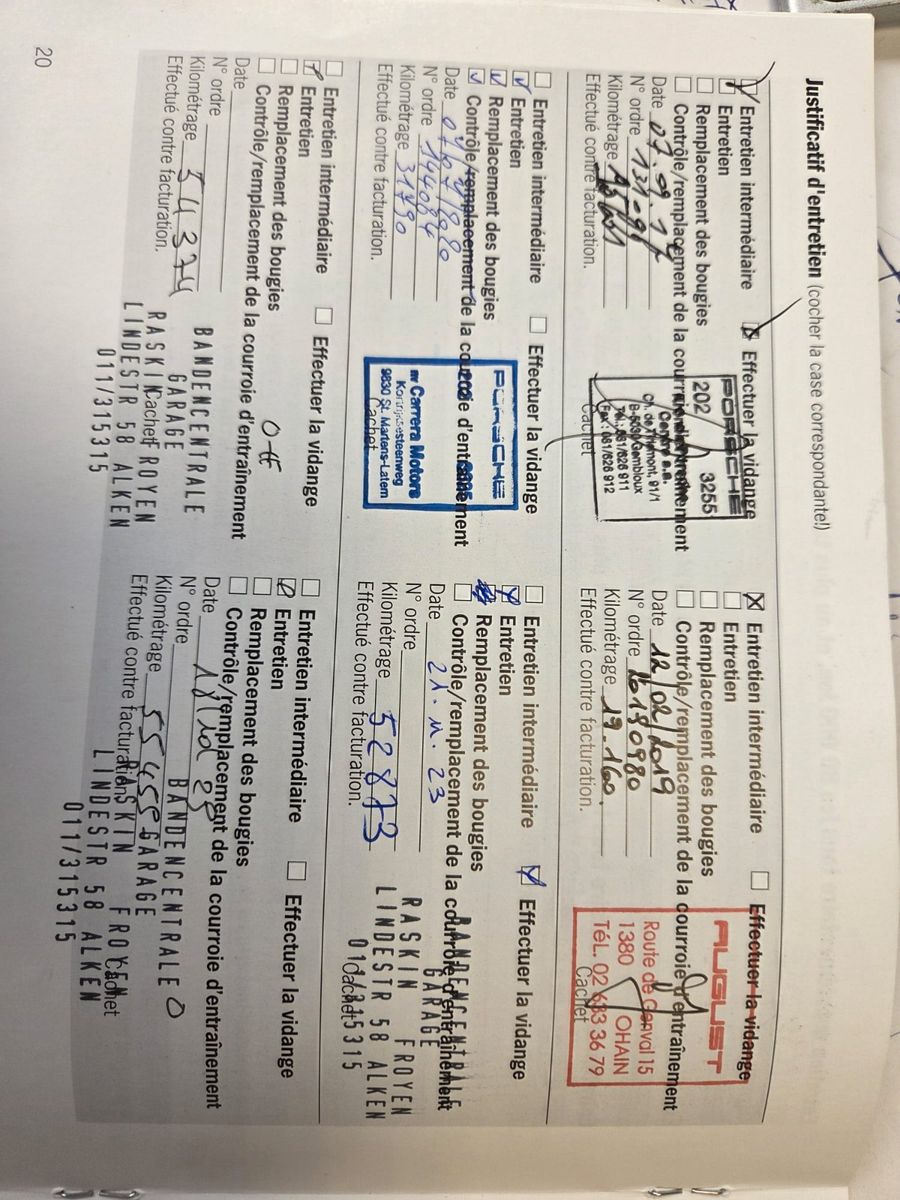 Justificatif d'entretien (cocher la case correspondante!)
Entretien intermédiaire Effectuer la vidange
Entretien
Remplacement des bougies
Contrôle/remplacement de la courroie d'entraînement
Date 07.09.17
N° ordre
Kilométrage
Effectué contre facturation.
PORSCHE
202 3255
Ch. de Tirlemont, 91/1
B-5030 Gembloux
Tél.: 081/626 911
Fax: 081/626 912
Cachet
Entretien intermédiaire Effectuer la vidange
Entretien
Remplacement des bougies
Contrôle/remplacement de la courroie d'entraînement
Date 12/02/2019
N° ordre
Kilométrage 19.160.
Effectué contre facturation.
AUGUST
Route de Genval 15
1380 OHAIN
Tél. 02 633 36 79
Cachet
Entretien intermédiaire Effectuer la vidange
Entretien
Remplacement des bougies
Contrôle/remplacement de la courroie d'entraînement
Date
N° ordre 144084
Kilométrage 31790
Effectué contre facturation.
PORSCHE
202
nv Carrera Motors
Kortrijksesteenweg
9830 St. Martens-Latem
Cachet
Entretien intermédiaire Effectuer la vidange
Entretien
Remplacement des bougies
Contrôle/remplacement de la courroie d'entraînement
Date 21.11.23
N° ordre
Kilométrage 52873
Effectué contre facturation.
BANDENCENTRALE
GARAGE
RASKIN FROYEN
LINDESTR 58 ALKEN
011/315315
Cachet
Entretien intermédiaire Effectuer la vidange
Entretien
Remplacement des bougies
Contrôle/remplacement de la courroie d'entraînement
Date
N° ordre
Kilométrage 54374
Effectué contre facturation.
BANDENCENTRALE
GARAGE
RASKIN FROYEN
LINDESTR 58 ALKEN
011/315315
Cachet
Entretien intermédiaire Effectuer la vidange
Entretien
Remplacement des bougies
Contrôle/remplacement de la courroie d'entraînement
Date
N° ordre
Kilométrage 55455
Effectué contre facturation.
BANDENCENTRALE
GARAGE
RASKIN FROYEN
LINDESTR 58 ALKEN
011/315315
Cachet
20